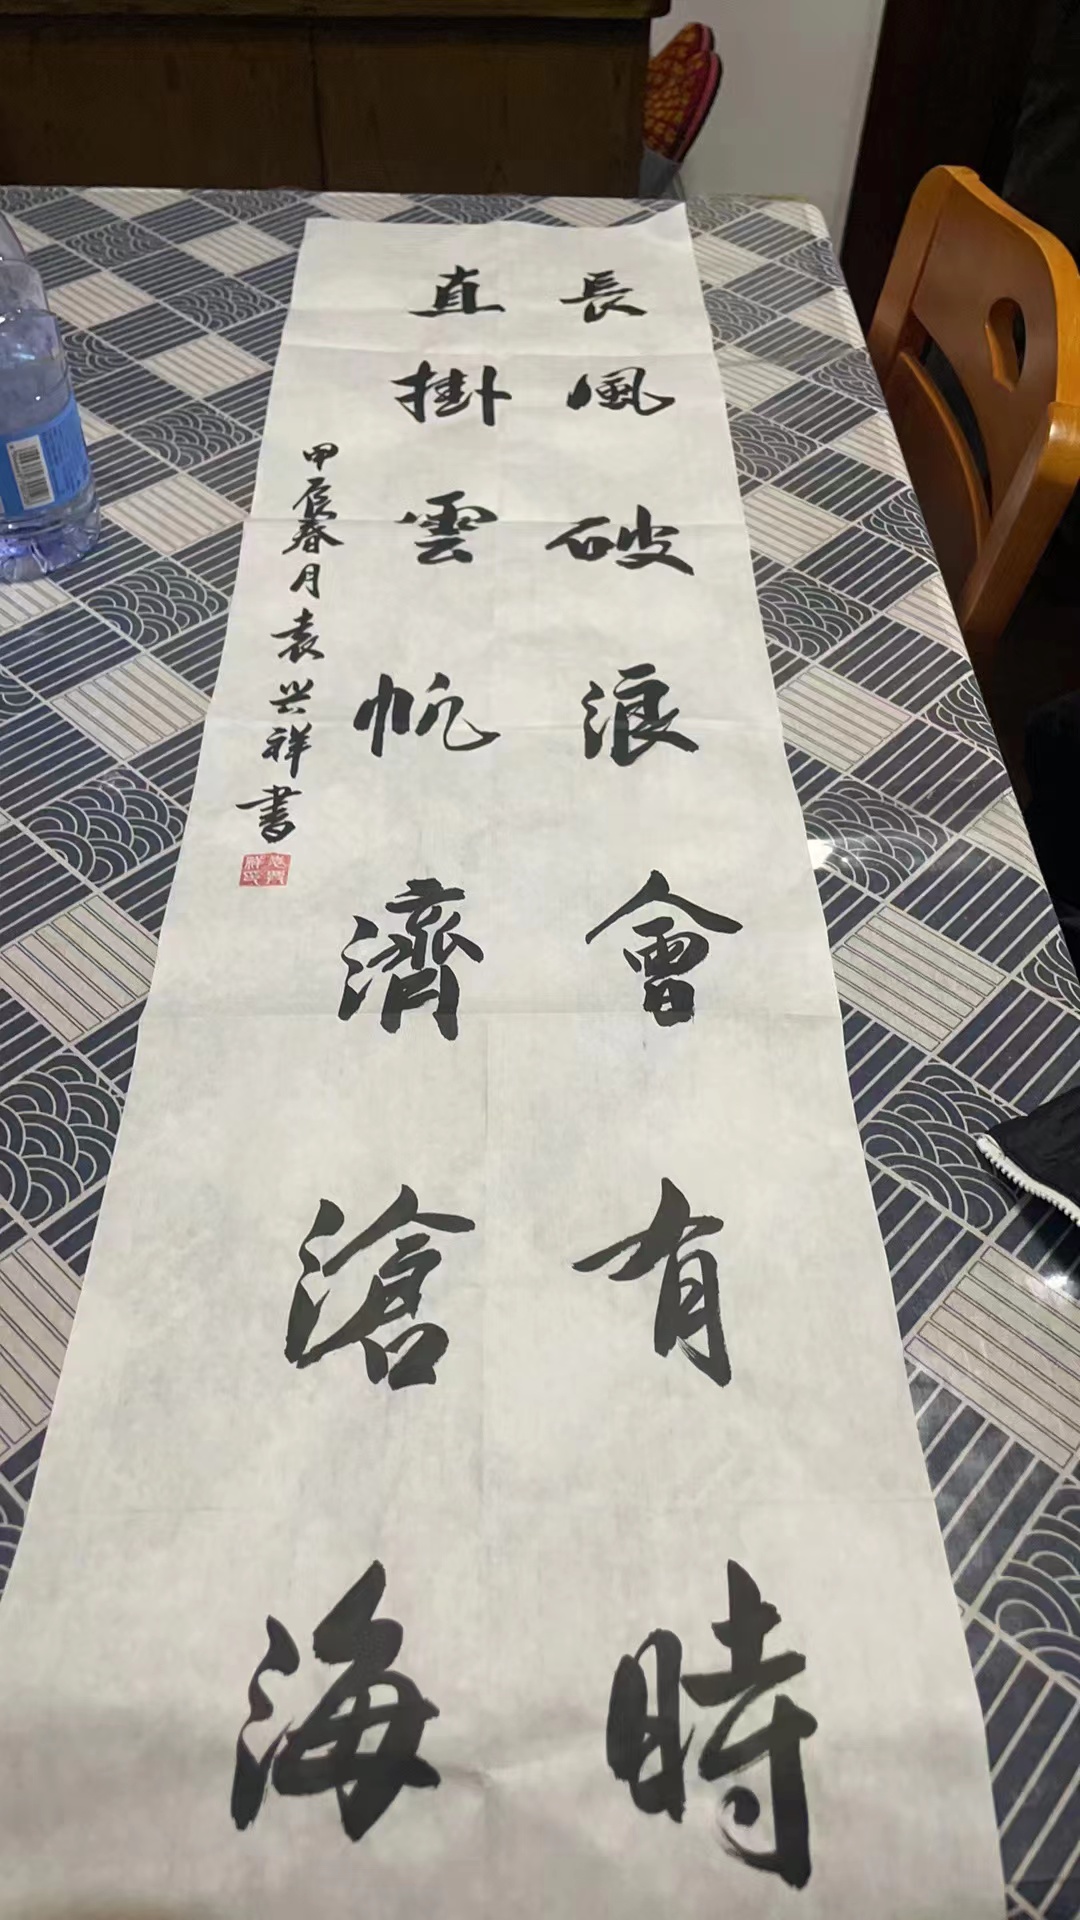 長風破浪會有時
直掛雲帆濟滄海
甲辰春月袁兴祥書